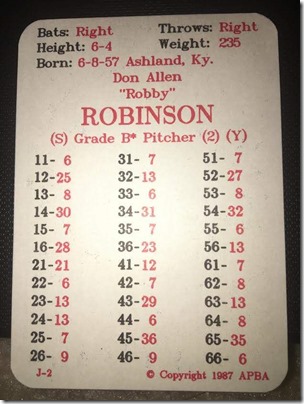 Bats: Right Throws: Right
Height: 6-4 Weight: 235
Born: 6-8-57 Ashland, Ky.
Don Allen
"Robby"
ROBINSON
(S) Grade B* Pitcher (2) (Y)
11- 6 31- 7 51- 7
12-25 32-13 52-27
13- 8 33- 6 53- 8
14-30 34-31 54-32
15- 7 35- 7 55- 6
16-28 36-23 56-13
21-21 41-12 61- 7
22- 6 42- 7 62- 8
23-13 43-29 63-13
24-13 44- 6 64- 8
25- 7 45-36 65-35
26- 9 46- 9 66- 6
J-2 © Copyright 1987 APBA